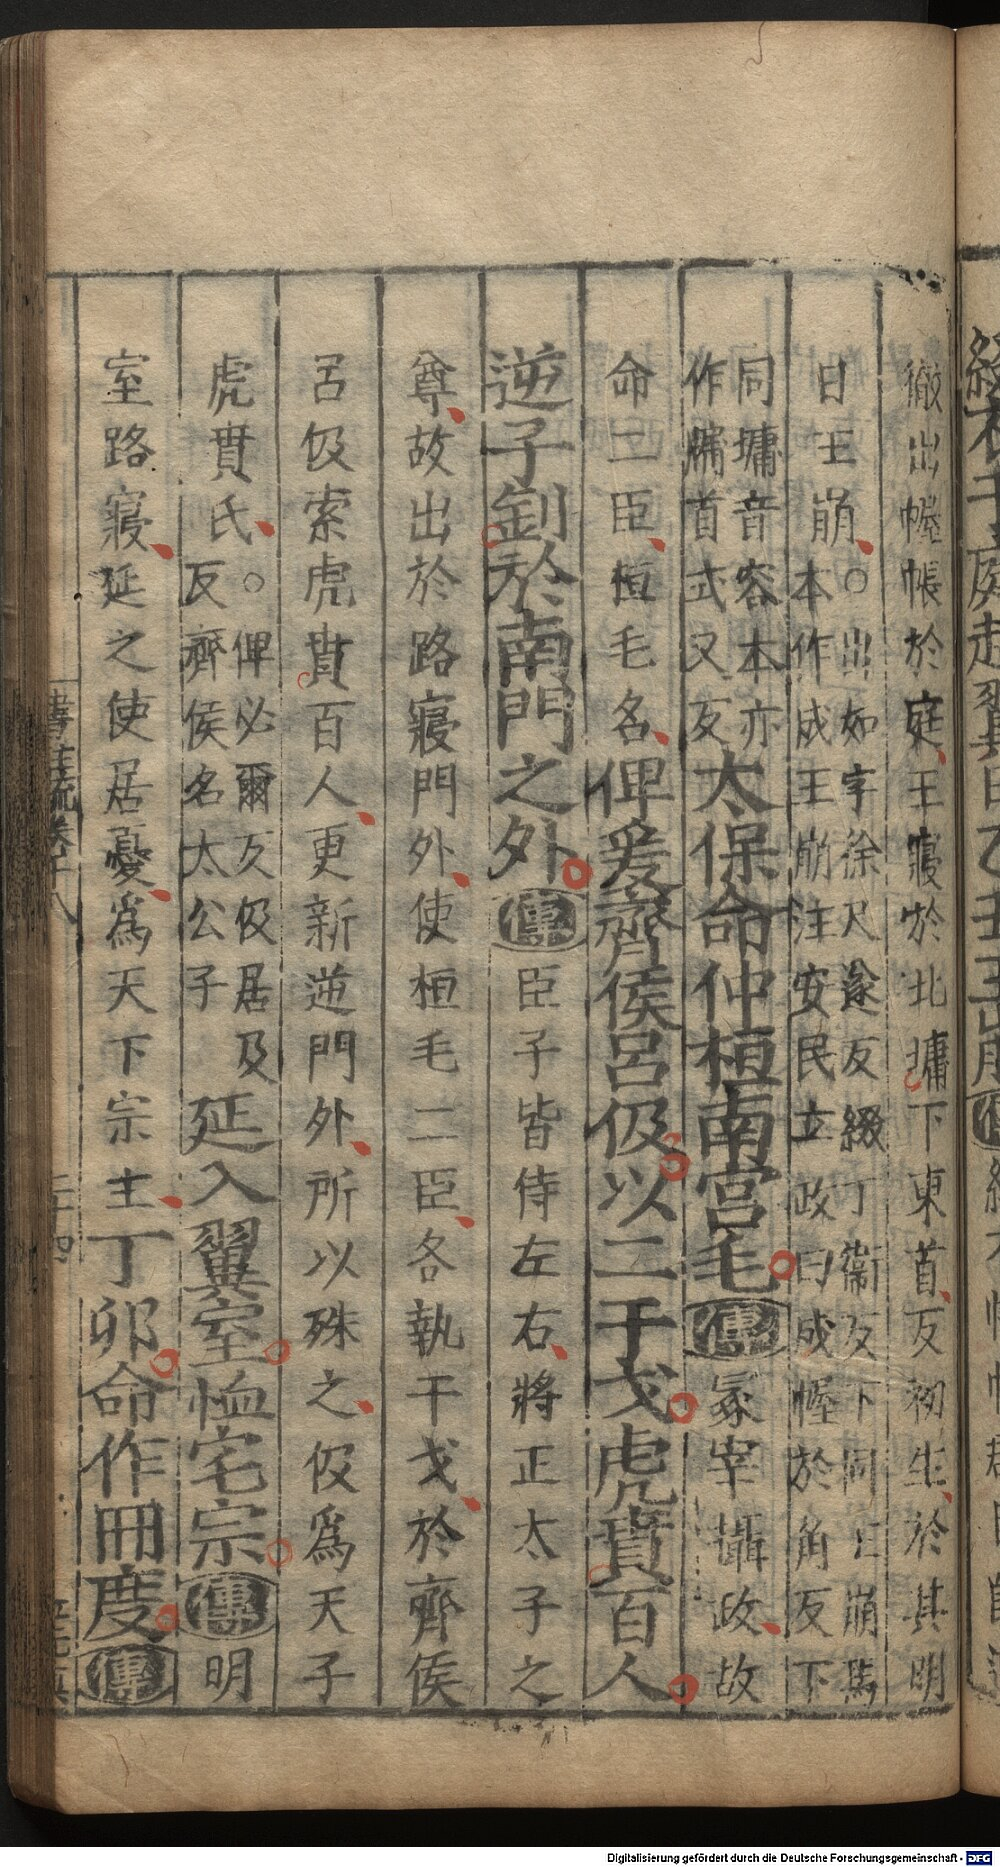 徹出幄帳於庭王寢於北墉下東首反初生於其明
日王崩○出如字徐尺遂反綴丁衞反下同王崩馬
本作成王崩注安民立政曰成幄於角反下
同墉音容本亦
作牗首式又反太保命仲桓南宮毛傳冢宰攝政故
命二臣桓毛名俾爰齊侯呂伋以二干戈虎賁百人
逆子釗於南門之外傳臣子皆侍左右將正太子之
尊故出於路寢門外使桓毛二臣各執干戈於齊侯
呂伋索虎賁百人更新逆門外所以殊之伋爲天子
虎賁氏○俾必爾反伋居及
反齊侯名太公子延入翼室恤宅宗傳明
室路寢延之使居憂爲天下宗主丁卯命作冊度傳
二十四
Digitalisierung gefördert durch die Deutsche Forschungsgemeinschaft - DFG